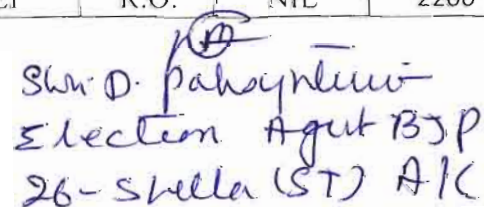 R.O. NIL 2200
Shri D. Paksyntiew
Election Agent BJP
26-Shella (ST) A/C